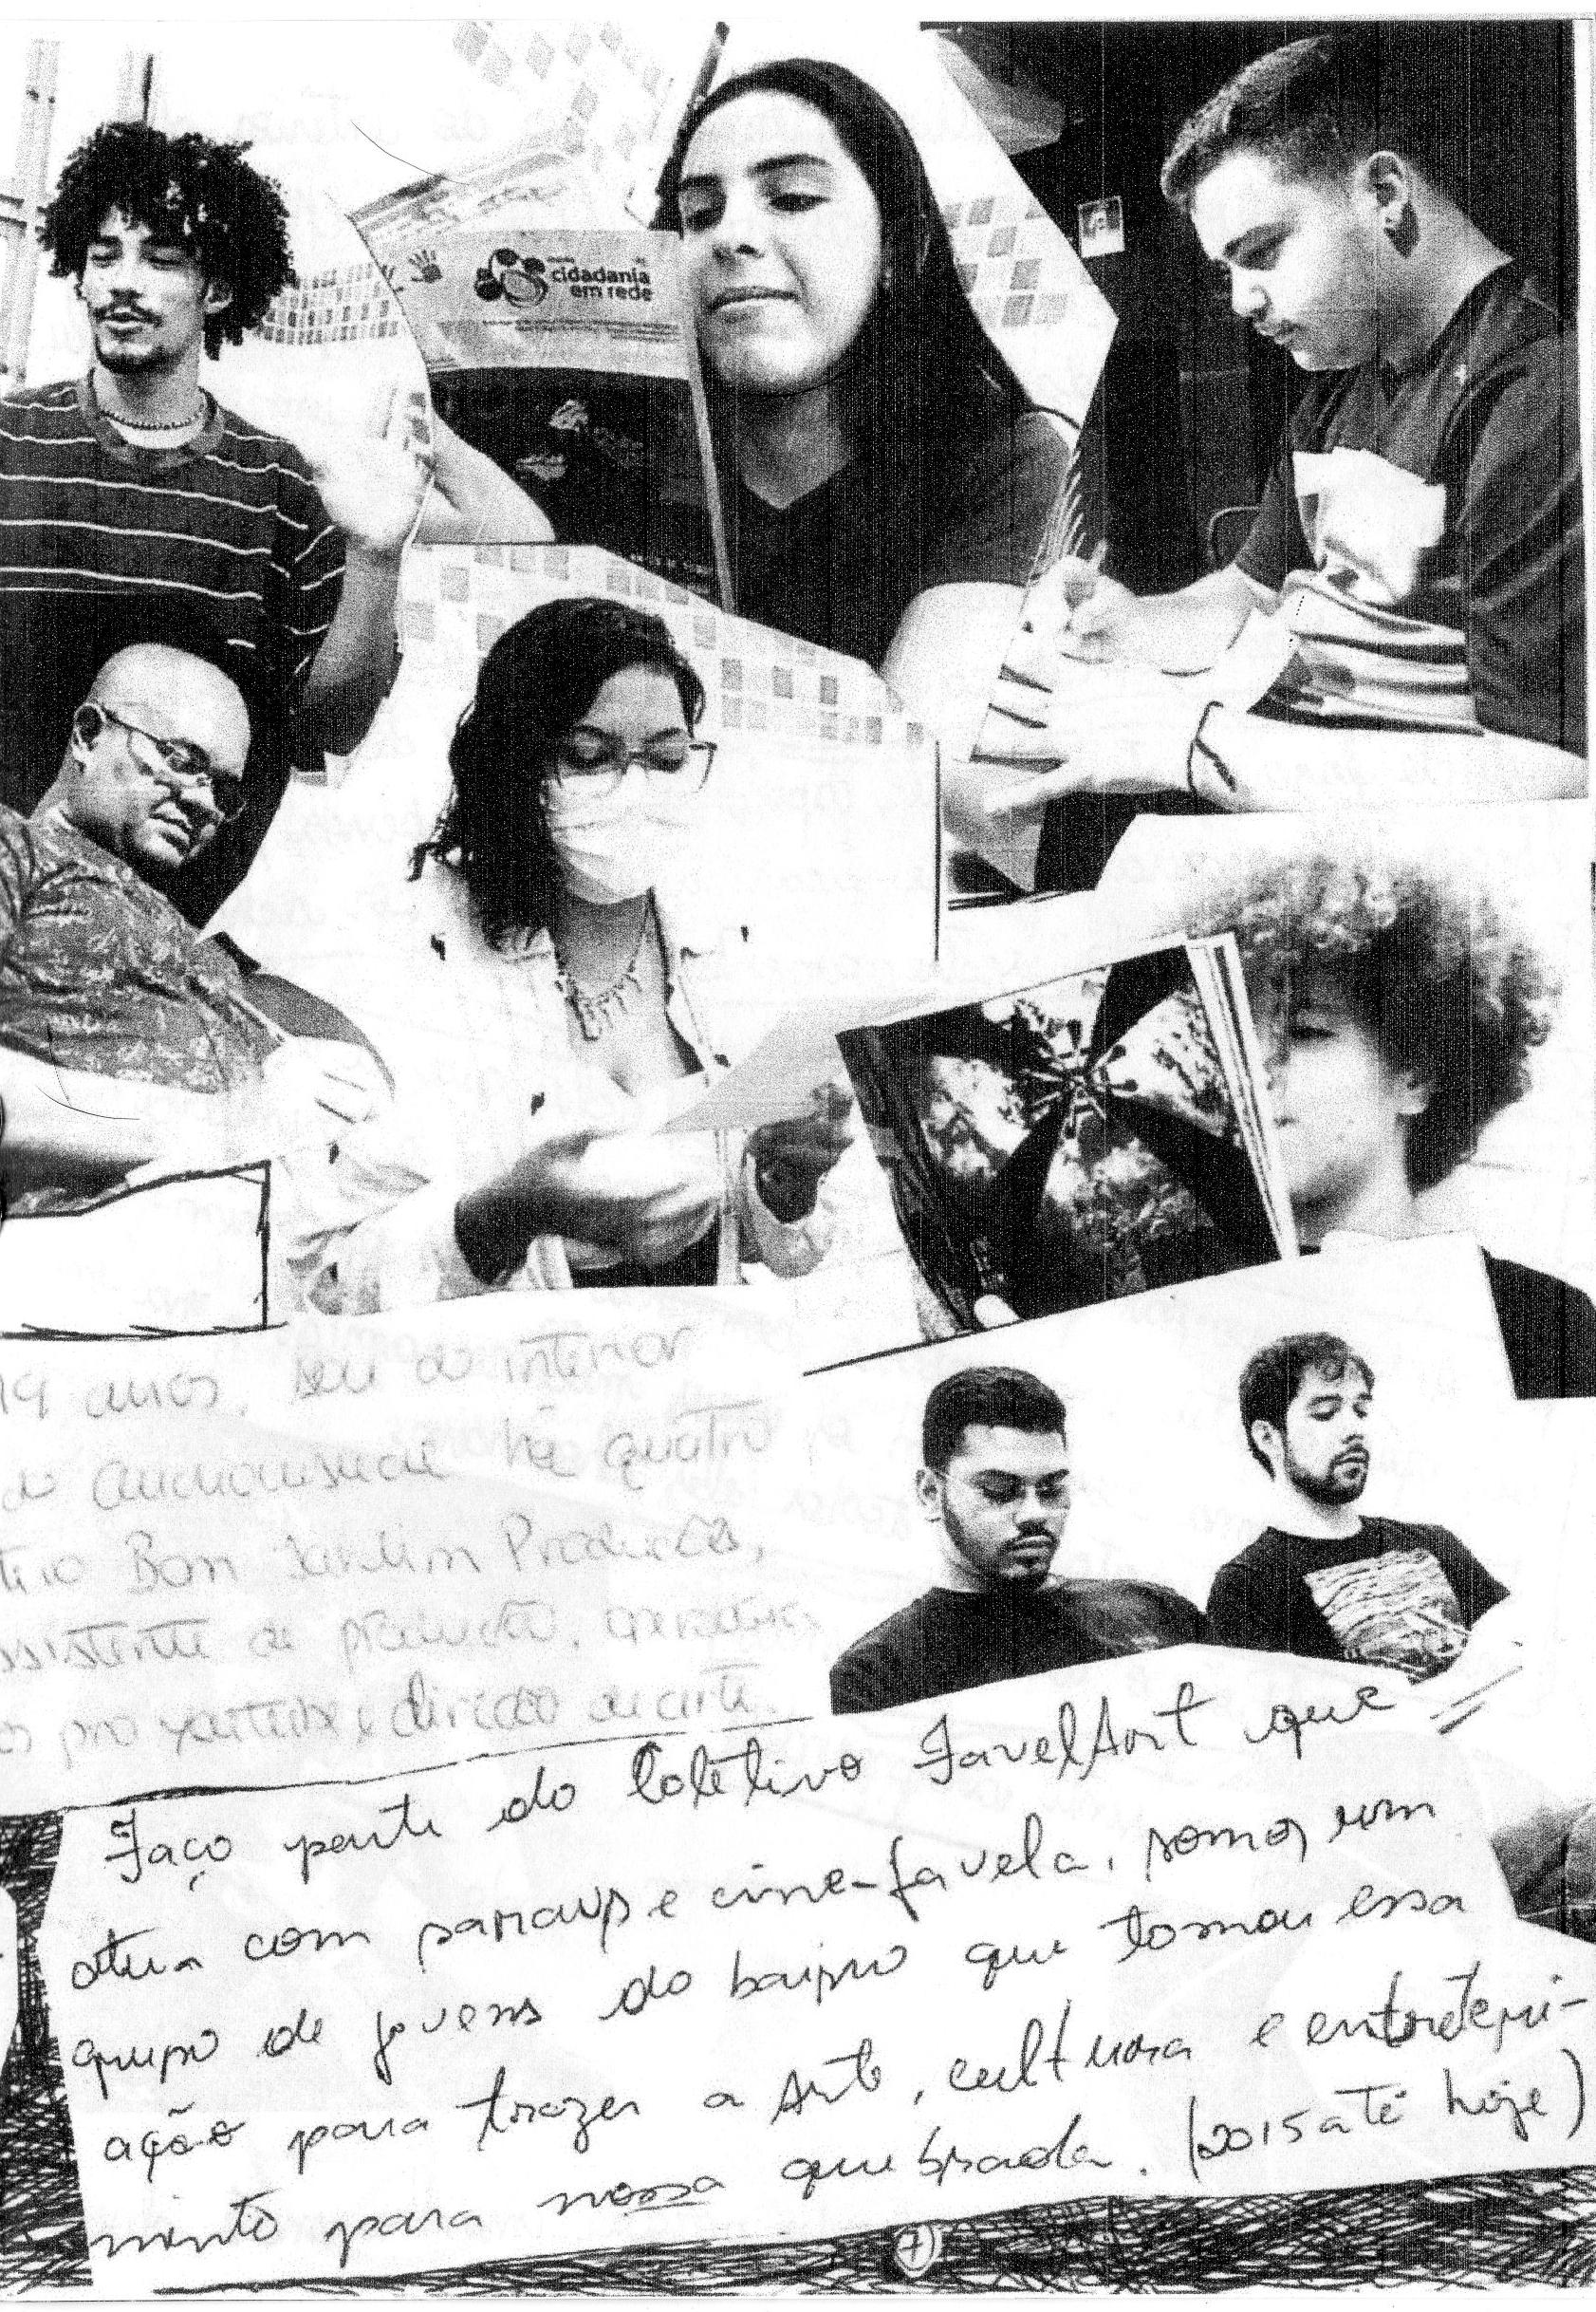 cidadania
em rede
19 anos, sou do interior
do audiovisual há quatro
Bom Jardim Produções,
assistente de produção,
direção de arte.
Faço parte do Coletivo FavelArt que
atua com saraus e cine-favela, somos um
grupo de jovens do bairro que tomou essa
ação para trazer a Arte, cultura e entreteni-
mento para nossa quebrada. (2015 até hoje)
7